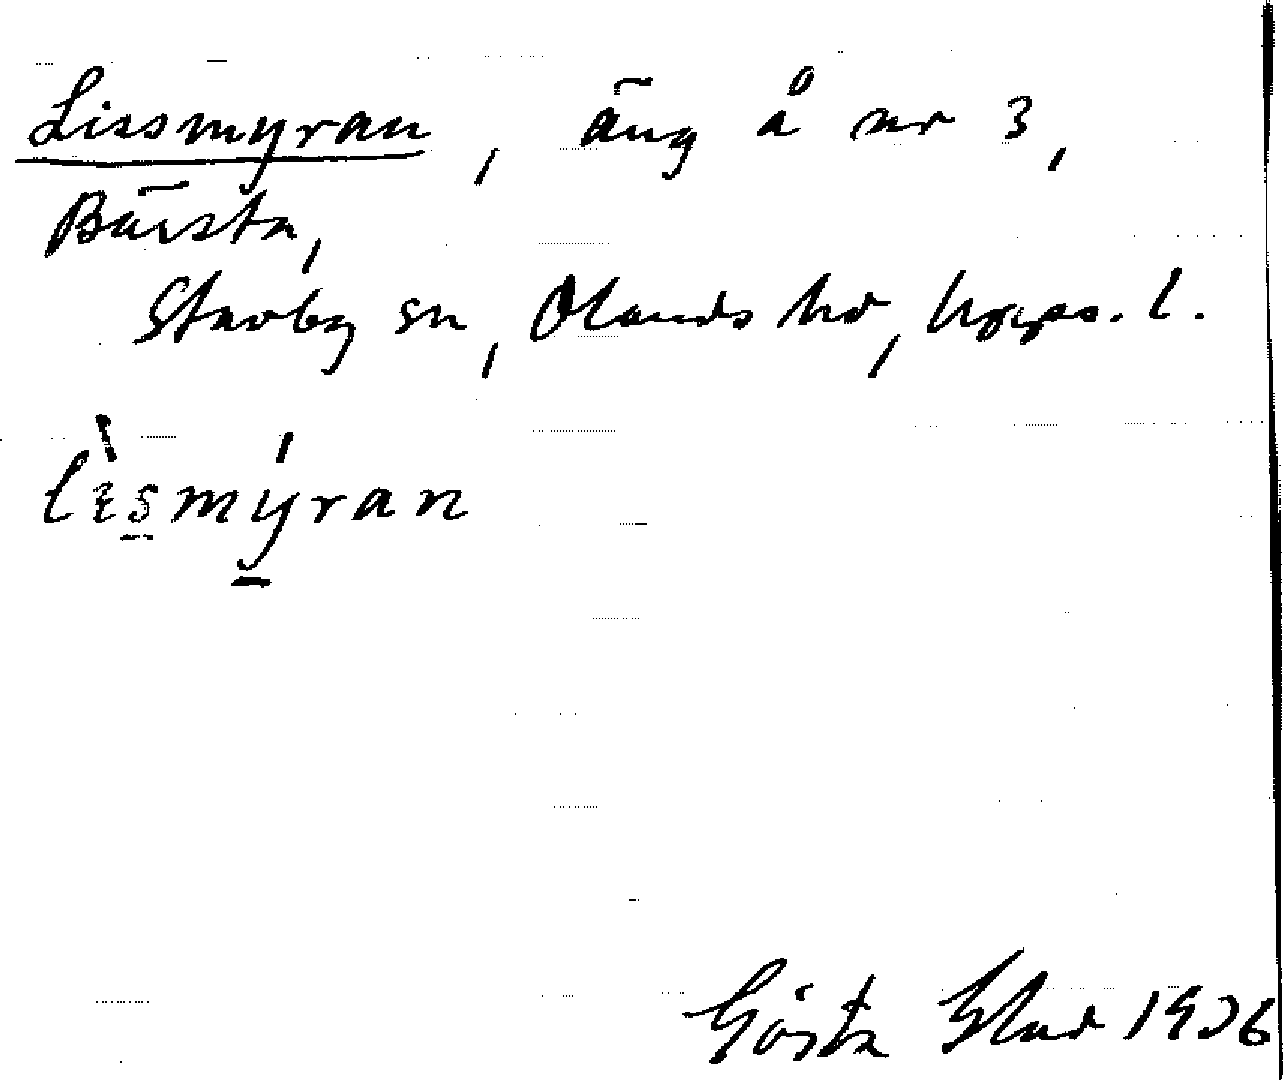 Lissmyran, äng å nr 3,
Bärsta,
Stavby sn, Olands hd, Upps. l.
lìsmýran
Gösta 1936